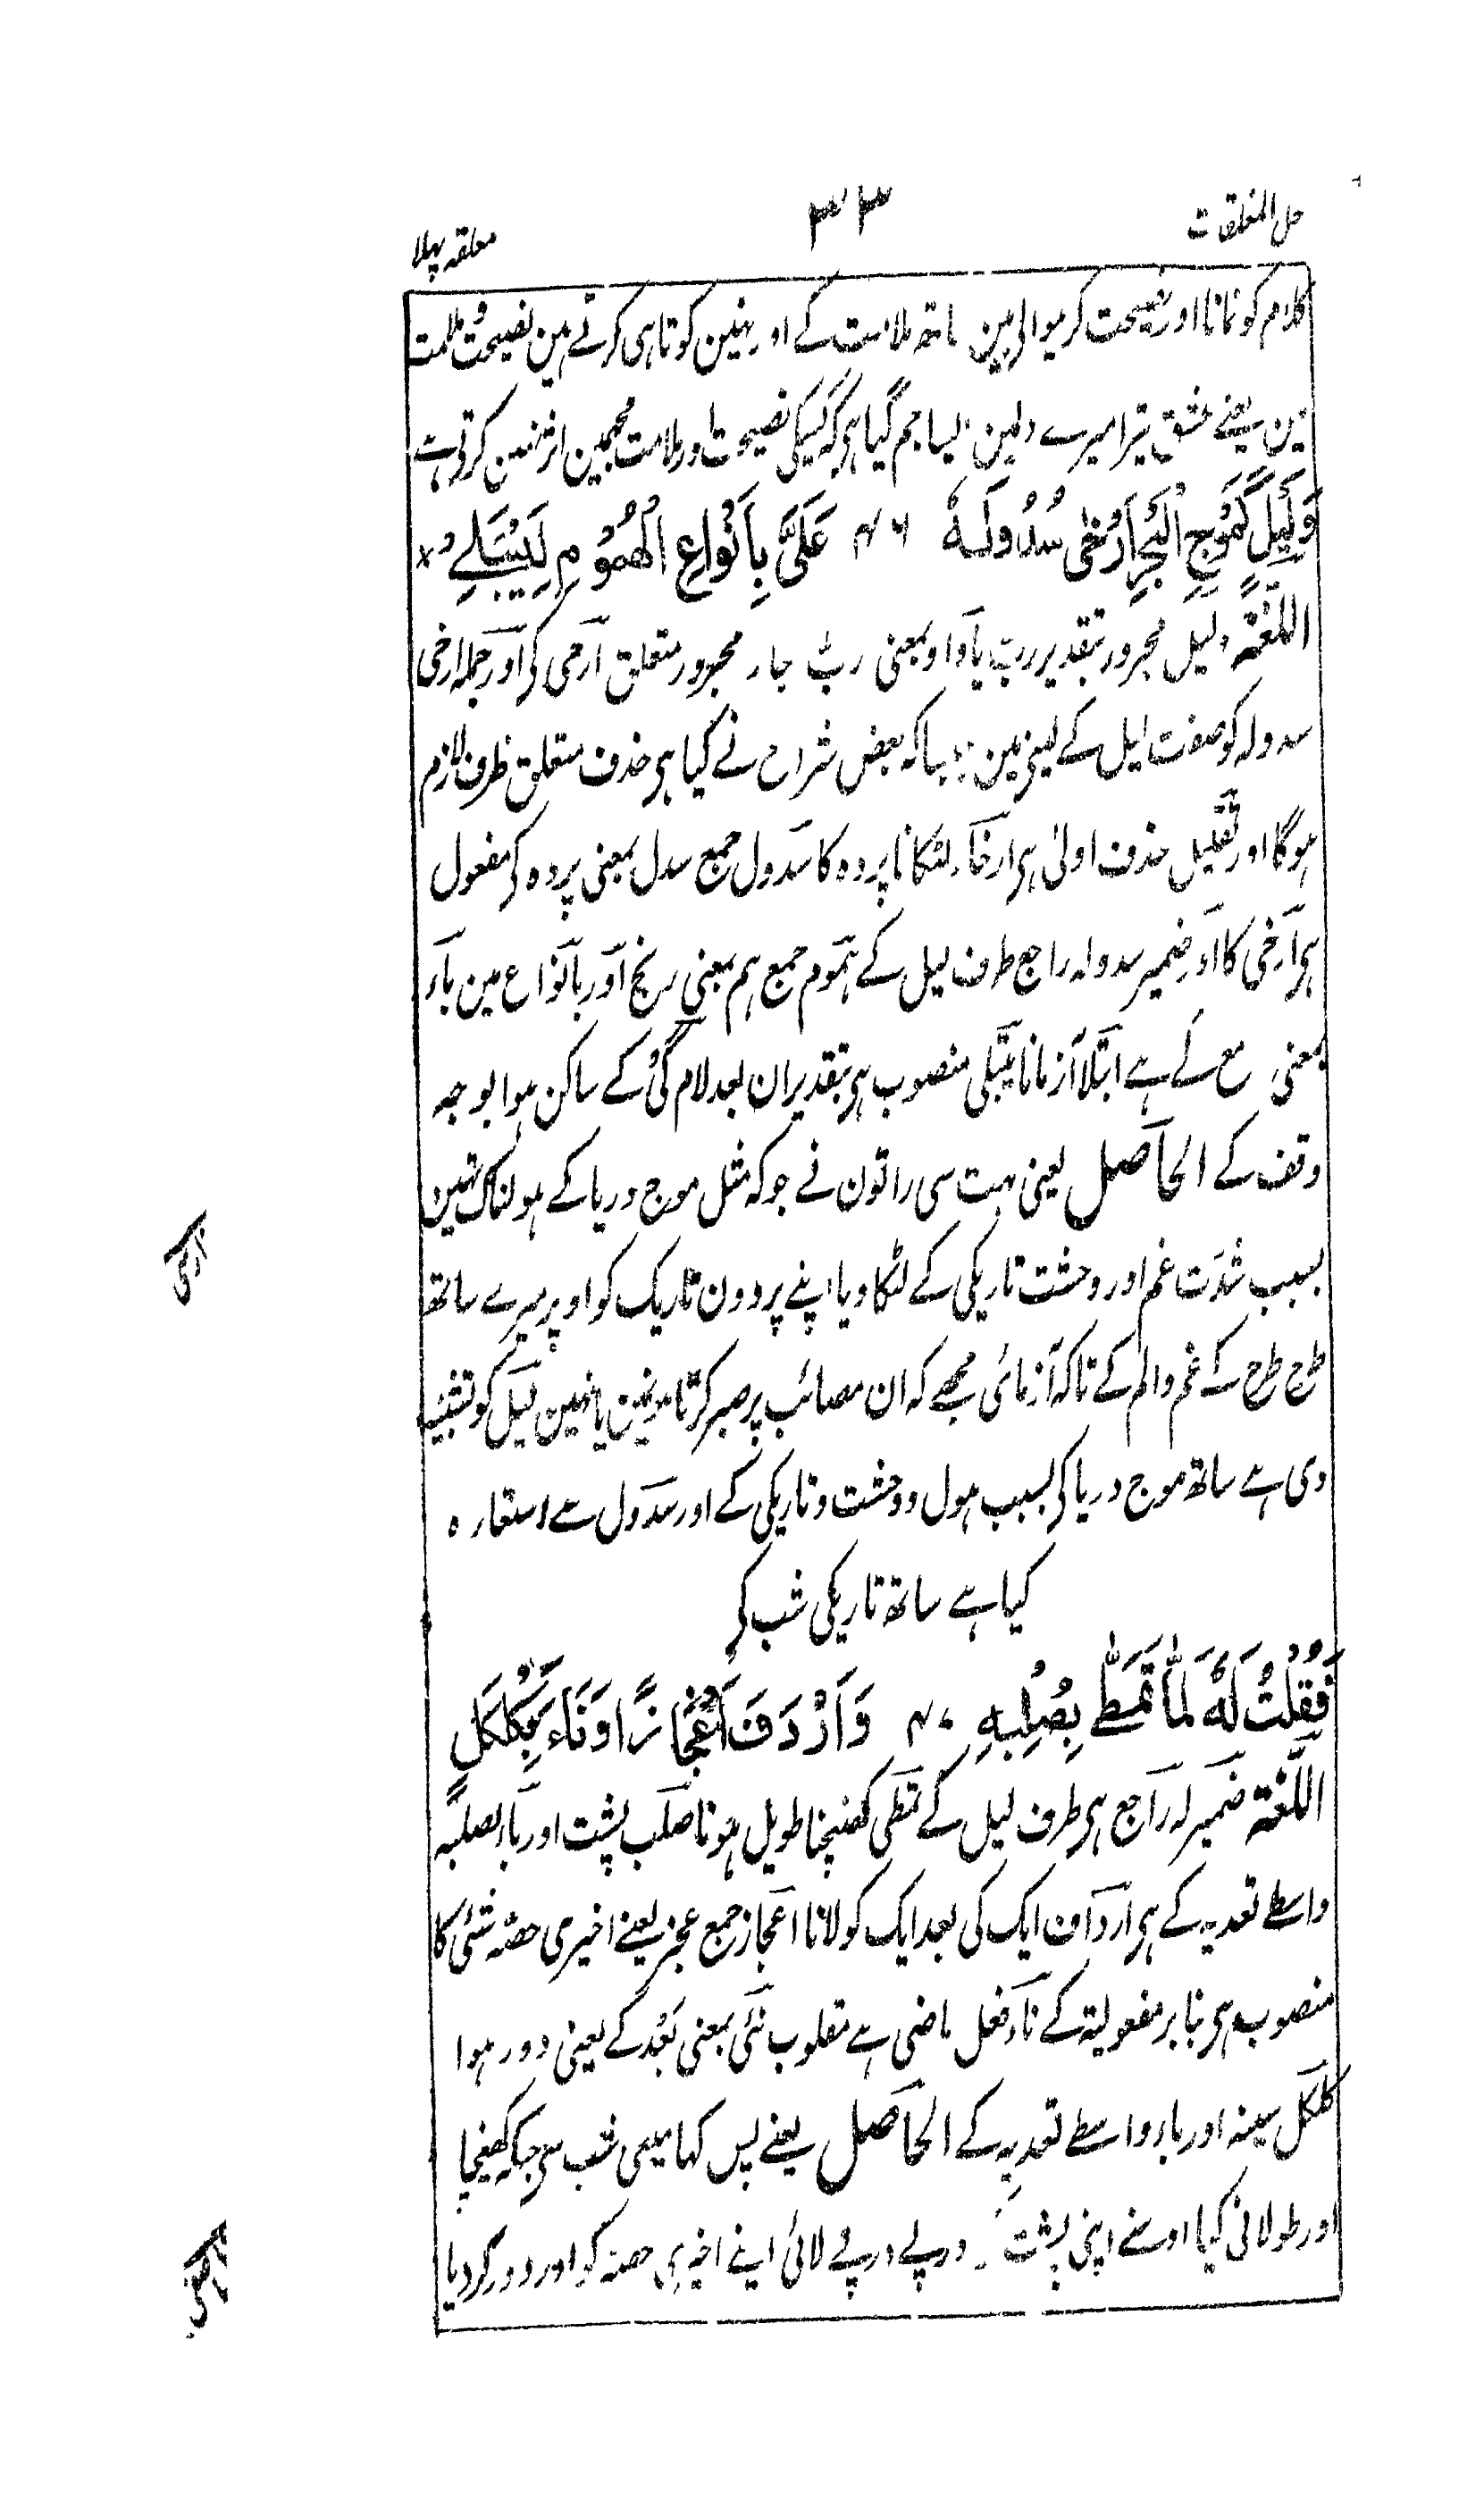 حل المغلقات
۳۳
معلقہ پہلا
کلام کو نمانا اور نصیحت کرنیوالی ہین ساتھ ملامت کے اور نہین کوتاہی کرتے ہین نصیحت و ملامت
ین یعنے عشق تیرا میرے دلمین ایسا جم گیا ہی کہ کسیکی نصیحت اور ملامت مجہمین اثر نہین کرتی ہے
وَلَيْلٍ كَمَوْجِ الْبَحْرِ اَرْخٰى سُدُوْلَهٗ ۴۶ عَلَيَّ بِاَنْوَاعِ الْهُمُوْمِ لِيَبْتَلِے
اللّغة ولیل مجرور بتقدیر رب یا واو بمعنی رب جار مجرور متعلق ارخی کی اور جملہ ارخی
سدولہ کو صفت لیل کے لینے مین جیسا کہ بعض شراح نے کیا ہی حذف متعلق ظرف لازم
ہوگا اور تقلیل حذف اولیٰ ہی ارخاء لٹکانا پردہ کا سدول جمع سدل بمعنی پردہ کی مفعول
ہی ارخی کا اور ضمیر سدولہ راجع طرف لیل کے ہموم جمع ہم بمعنی رنج اور بانواع مین باء
بمعنی مع کے ہے ابتلا آزمانا یبتلی منصوب ہی بتقدیر ان بعد لام کی کے ساکن ہوا بوجہ
وقف کے الحاصل یعنی بہت سی راتون نے جو کہ مثل موج دریا کے ہولناک تہین
بسبب شدت غم اور وحشت تاریکی کے لٹکا دیا اپنے پردون تاریک کو اوپر میرے ساتھ
طرح طرح کے غم و الم کے تاکہ آزمائی مجھے کہ ان مصائب پر صبر کرتا ہونمین یا نہین لیل کو تشبیہ
دی ہے ساتھ موج دریا کی بسبب ہول و وحشت و تاریکی کے اور سدول سے استعارہ
کیا ہے ساتھ تاریکی شب کی
فَقُلْتُ لَهٗ لَمَّا تَمَطّٰى بِصُلْبِهٖ ۴۷ وَاَرْدَفَ اَعْجَازًا وَنَاءَ بِكَلْكَلٍ
اللّغة ضمیر لہ راجع ہی طرف لیل کے تمطی کھنچنا طویل ہونا صلب پشت اور باء بصلبہ
واسطے تعدیہ کے ہی ارداف ایک کی بعد ایک کو لانا اعجاز جمع عجز یعنے اخیری حصہ شئی کا
منصوب ہی بنابر مفعولیة کے ناء فعل ماضی ہے مقلوب نئی بمعنی بعد کے یعنی دور ہوا
کلکل سینہ اور باء واسطے تعدیہ کے الحاصل یعنے پس کہا مینی شب سے جبکہ کھینچا
اور طولانی کیا اوسنے اپنی پشت درپے درپے لائی اپنے اخیری حصہ کو اور دور کر دیا